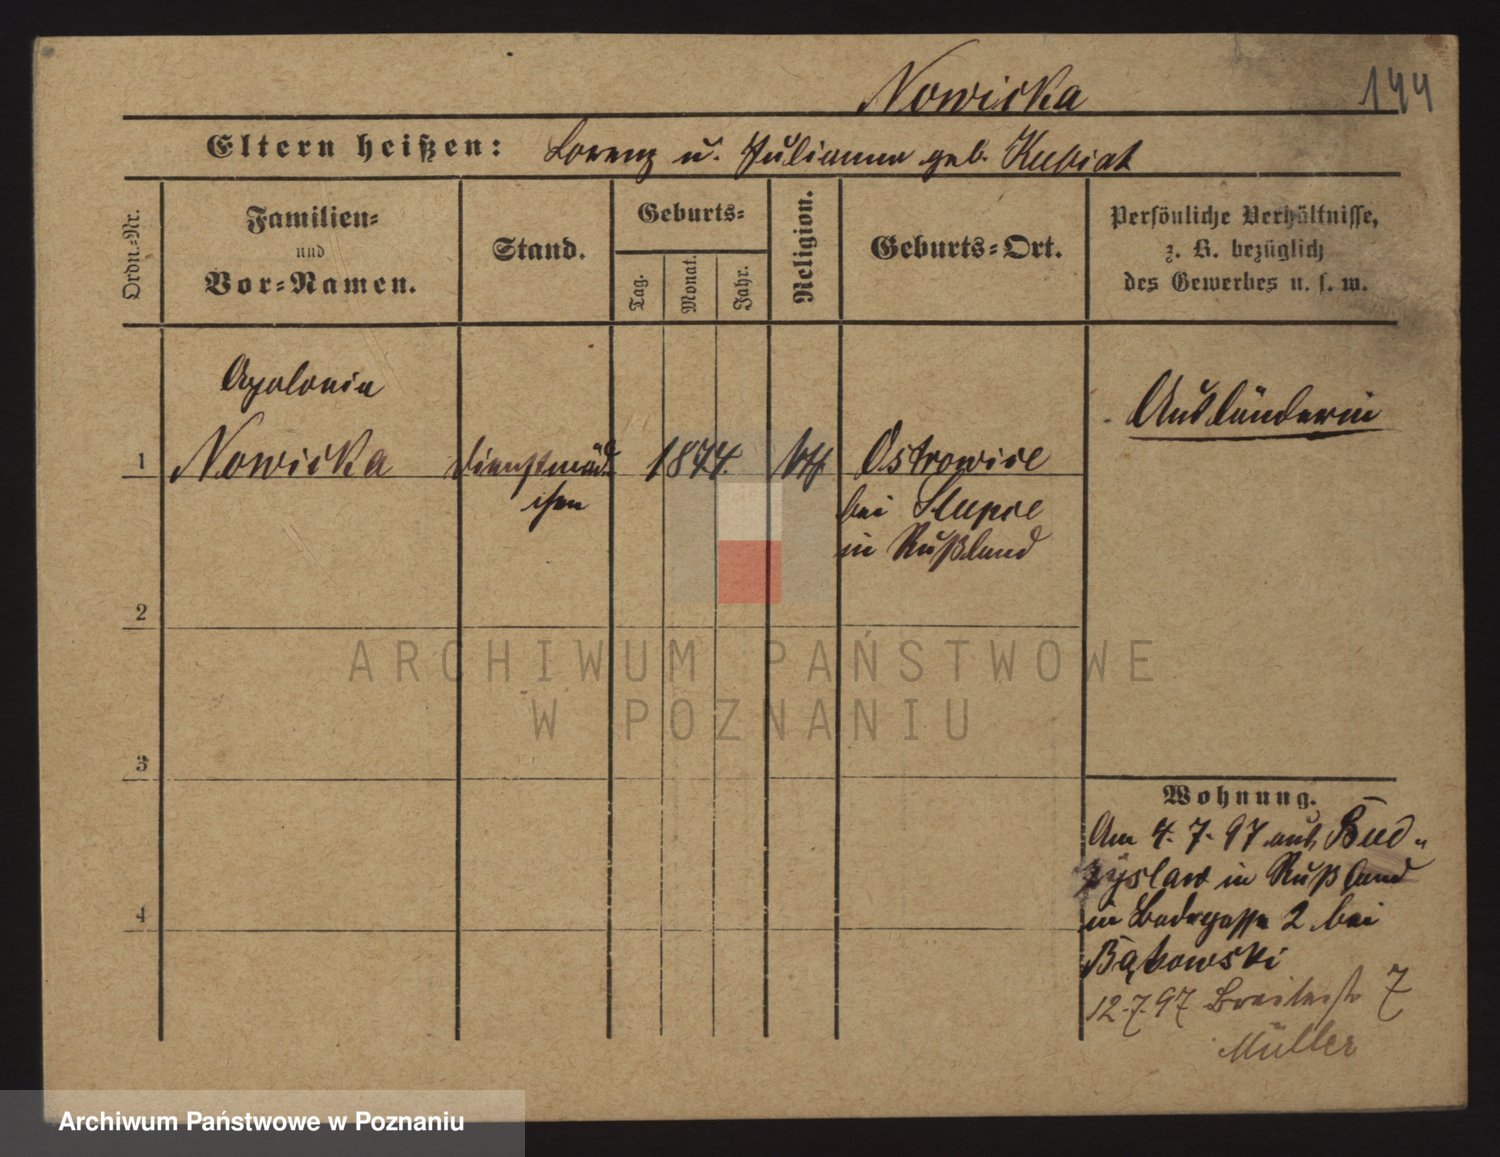 Nowicka 144
Eltern heißen: Lorenz u. Julianna geb. Kubiak
Ordn.-Nr.
Familien-
und
Vor-Namen.
Stand.
Geburts-
Tag.
Monat.
Jahr.
Religion.
Geburts-Ort.
Persönliche Verhältnisse,
z. B. bezüglich
des Gewerbes u. s. w.
Apolonia
1 Nowicka Dienstmäd 1874. kth Ostrowice
chen
bei Slupce
in Rußland
Ausländerin
2
3
4
Wohnung.
Am 4.7.97 aus Bud-
zyslaw in Rußland
in Badegasse 2 bei
Bąkowski
12.7.97 Breitestr 7
Müller
ARCHIWUM PAŃSTWOWE
W POZNANIU
Archiwum Państwowe w Poznaniu